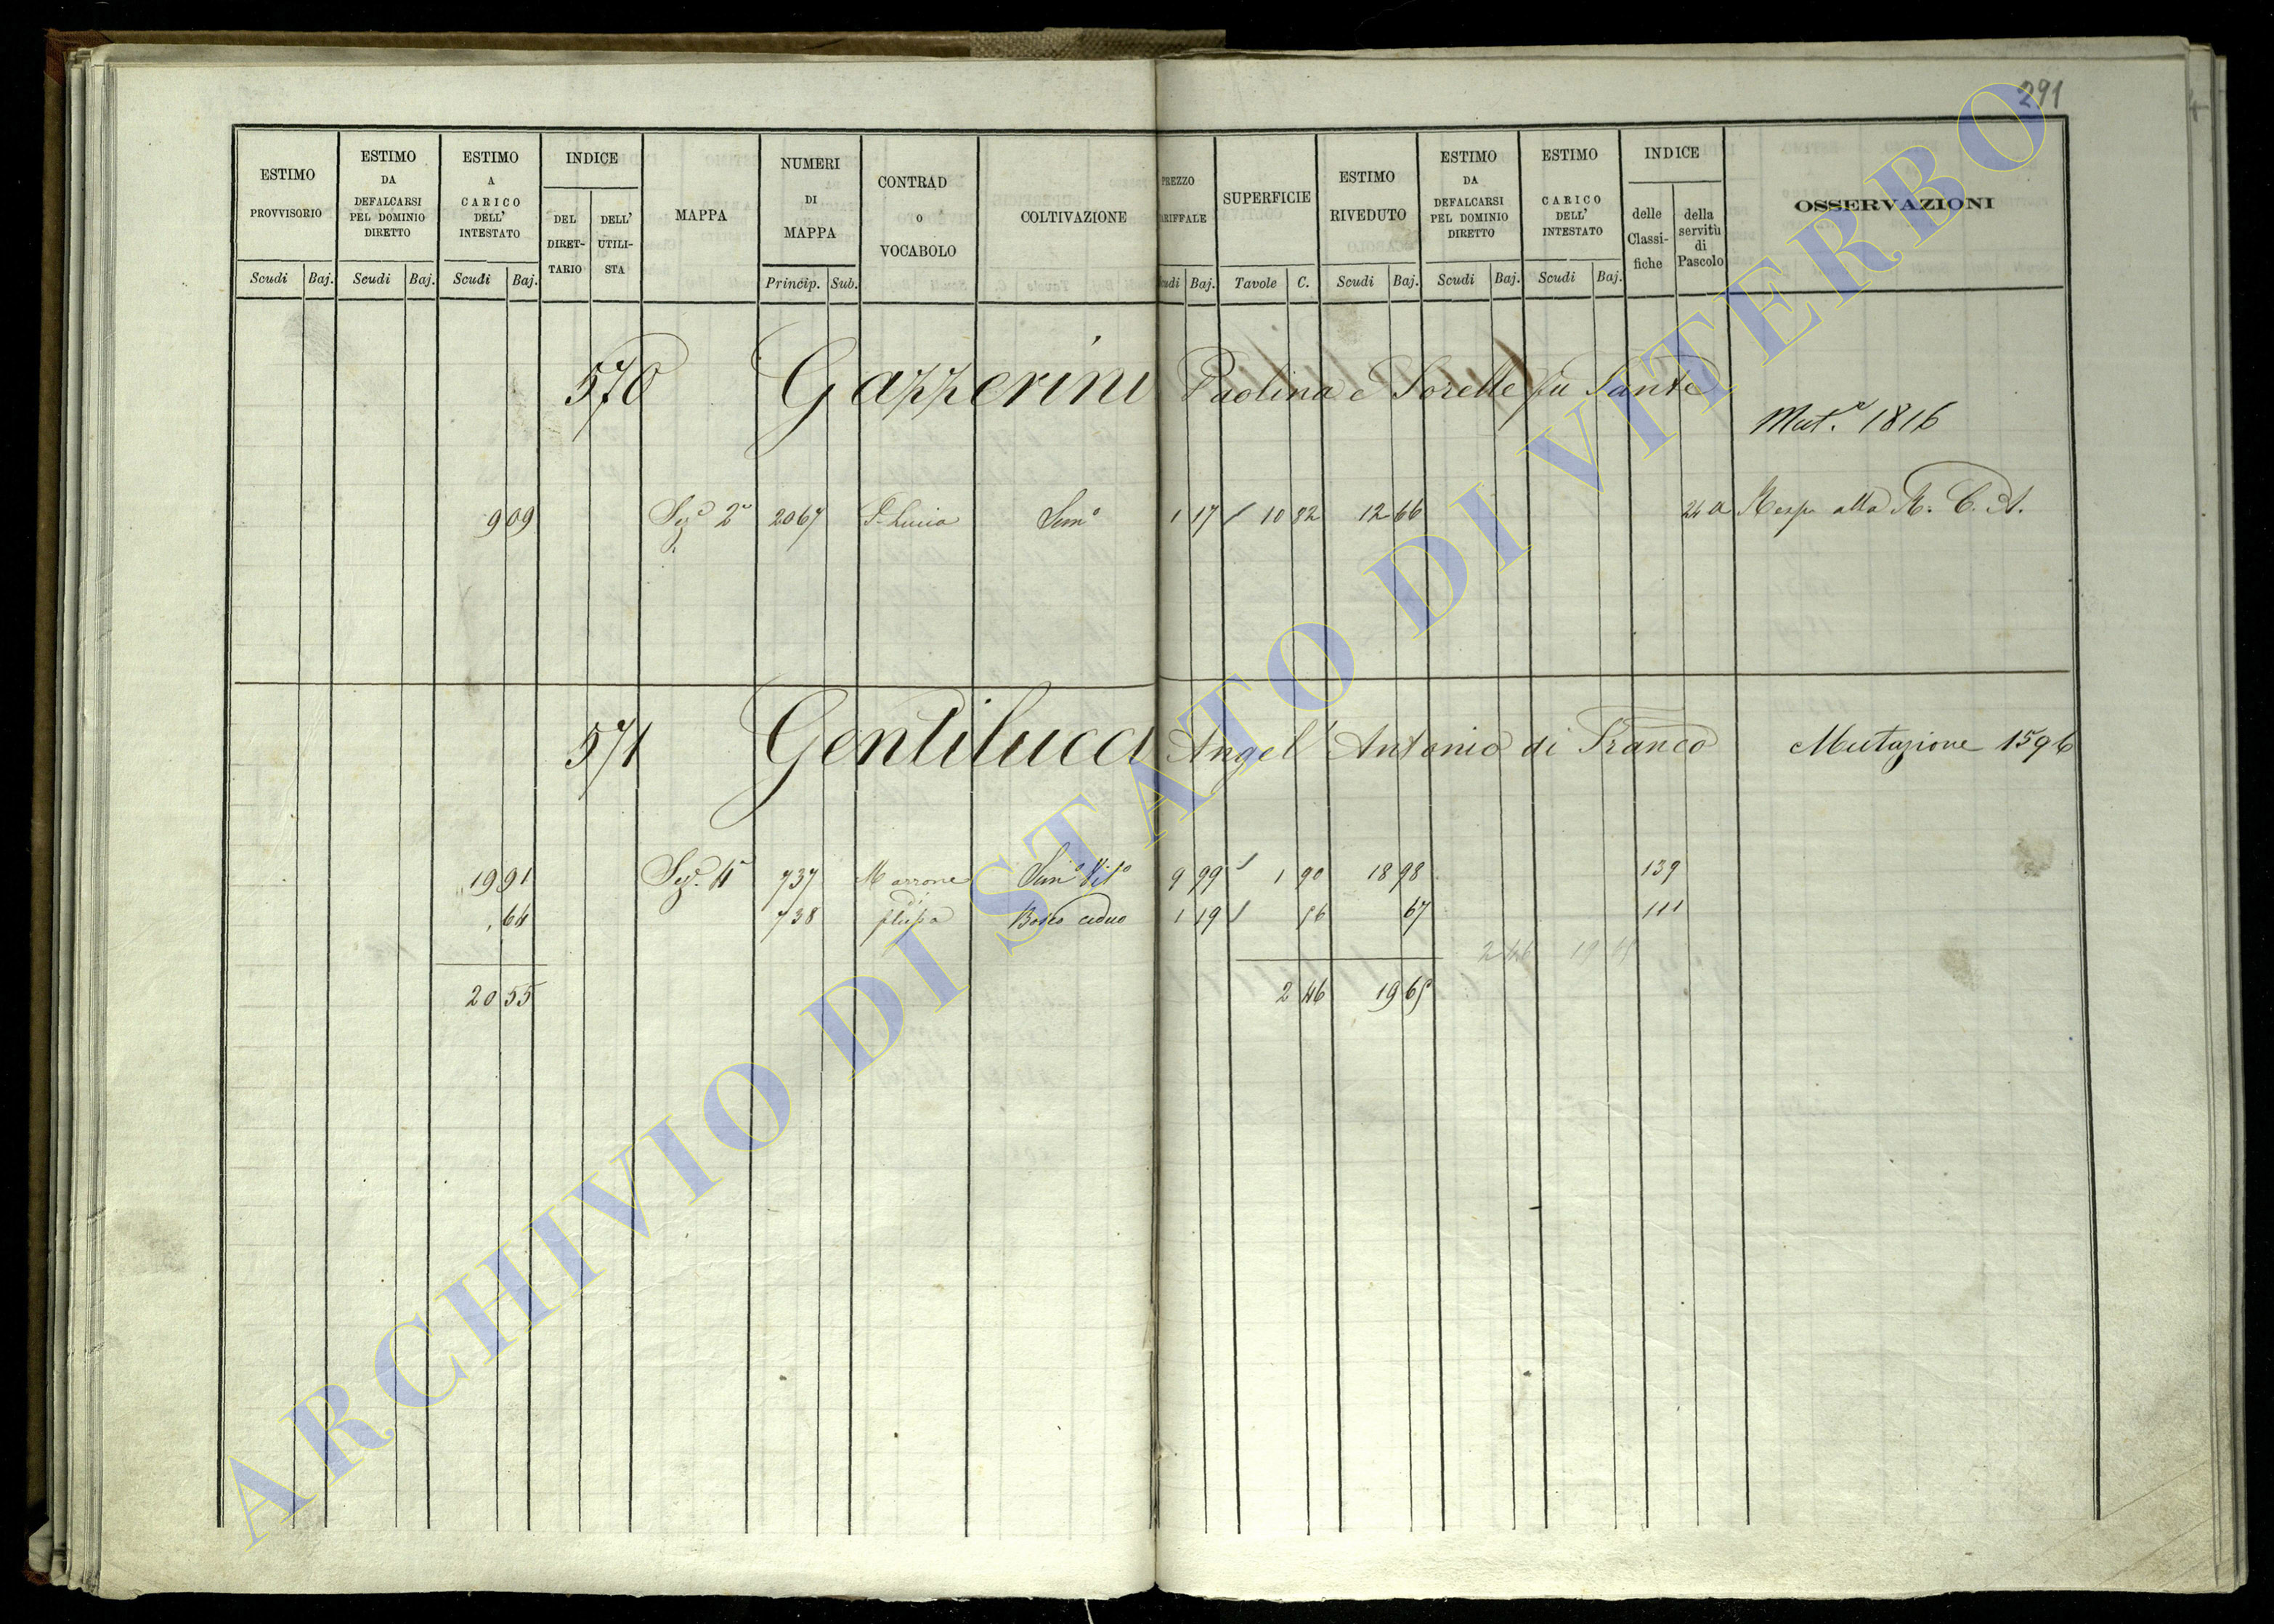 291
ESTIMO PROVVISORIO Scudi Baj.
ESTIMO DA DEFALCARSI PEL DOMINIO DIRETTO Scudi Baj.
ESTIMO A CARICO DELL' INTESTATO Scudi Baj.
INDICE DEL DIRET-TARIO DELL' UTILI-STA
MAPPA
NUMERI DI MAPPA Princip. Sub.
CONTRAD o VOCABOLO
COLTIVAZIONE
PREZZO Baj.
SUPERFICIE Tavole C.
ESTIMO RIVEDUTO Scudi Baj.
ESTIMO DA DEFALCARSI PEL DOMINIO DIRETTO Scudi Baj.
ESTIMO CARICO DELL' INTESTATO Scudi Baj.
INDICE delle Classi-fiche della servitù di Pascolo
OSSERVAZIONI
570 Gazzerini Paolina e Sorelle fu Sante
Mut.e 1816
9 09 Sez.e 2a 2067 S. Lucia Sem.o 1 17 10 82 12 66 24 a Resp. alla R. C. A.
571 Gentilucci Angel' Antonio di Franco Mutazione 1596
19 91 Sez. 4a 737 Marrone Sem.o Vit.o 9 99 1 90 18 98 139
64 738 Bosco ceduo 1 19 56 67 111
2 46 19
20 55 2 46 19 65
ARCHIVIO DI STATO DI VITERBO